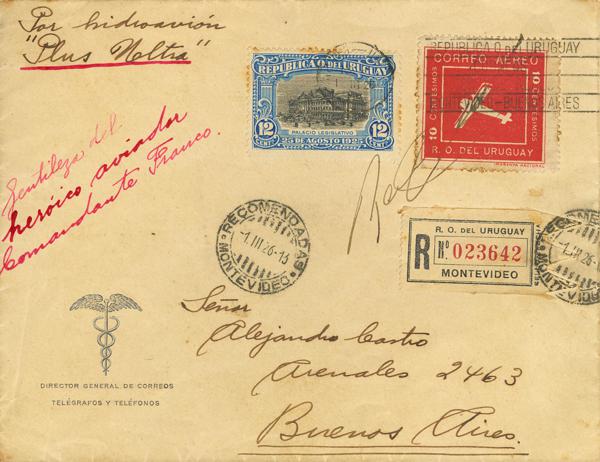 Por hidroavión
"Plus Ultra"
Gentileza del
heróico aviador
Comandante Franco.
REPUBLICA O. DEL URUGUAY
12 12
CENT. CENT.
PALACIO LEGISLATIVO
25 DE AGOSTO 1925
REPUBLICA O. DEL URUGUAY
BUENOS AIRES
CORREO AEREO
10 CENTESIMOS
10 CENTESIMOS
R. O. DEL URUGUAY
IMPRENTA NACIONAL
RECOMENDADAS
-1.III.26-13
MONTEVIDEO
R. O. DEL URUGUAY
R No. 023642
MONTEVIDEO
RECOMENDADAS
-1.III.26-
MONTEVIDEO
Señor
Alejandro Castro
Arenales 2463
Buenos Aires.
DIRECTOR GENERAL DE CORREOS
TELÉGRAFOS Y TELÉFONOS